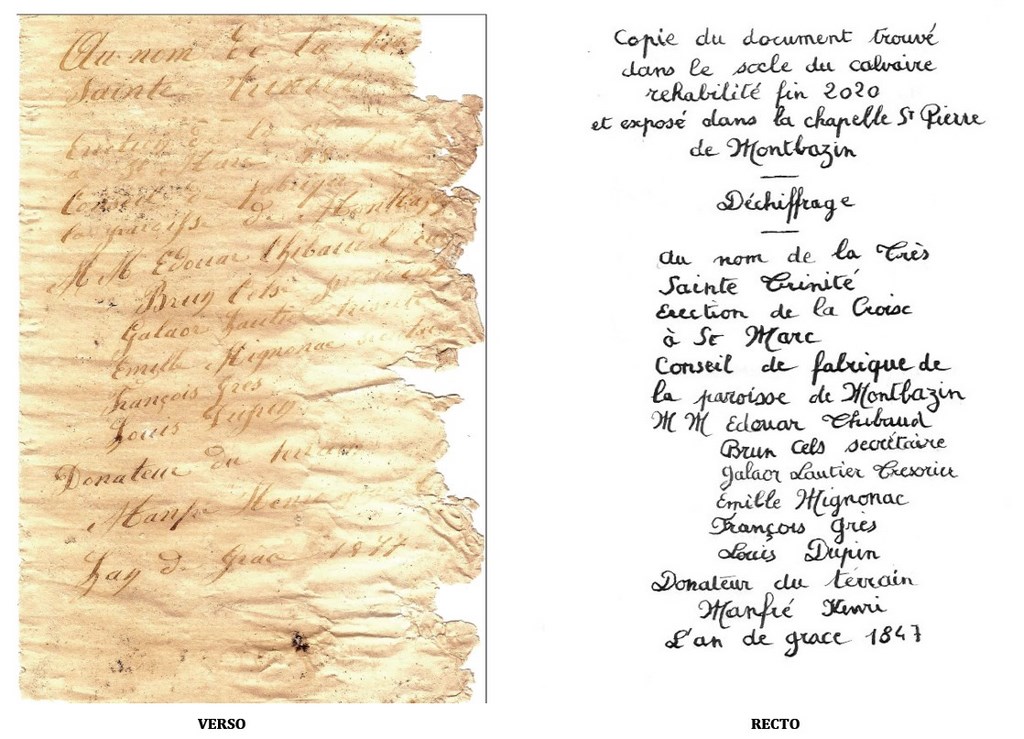 Au nom de la
Sainte
Erection
Conseil de fabrique
la paroisse de Montbaz
M M Edouar Thibaud
Brun Cels
Galaor Lautier
Emille Mignonac
François Gres
Louis Dupin
Donateur du terrain
Manfre Henri
Lan de grace 1847
VERSO
Copie du document trouvé
dans le socle du calvaire
rehabilité fin 2020
et exposé dans la chapelle St Pierre
de Montbazin
Déchiffrage
Au nom de la Très
Sainte Trinité
Erection de la Croise
à St Marc
Conseil de fabrique de
la paroisse de Montbazin
M M Edouar Thibaud
Brun Cels secrétaire
Jalaor Lautier Tresorier
Emille Mignonac
François Gres
Louis Dupin
Donateur du terrain
Manfré Henri
L'an de grace 1847
RECTO